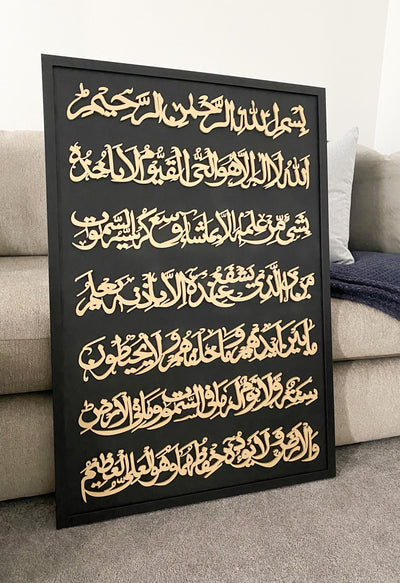 بِسْمِ اللهِ الرَّحْمٰنِ الرَّحِيْمِ
اللهُ لا اله الا هو الحَيُّ القَيُّوْمُ لا تاخذهٗ
بشَيْءٍ مِّنْ علمه الا بما شاء وسع كرسيه السَّمٰوٰت
مَنْ ذَا الَّذِيْ يشفع عندهٗ الا باذنه يعلم
ما بين ايديهم وما خلفهم ولا يحيطون
سنة ولا نوم له ما في السَّمٰوٰت وما في الارض
والارض ولا يـٔودهٗ حفظهما وهو العلي العظيم